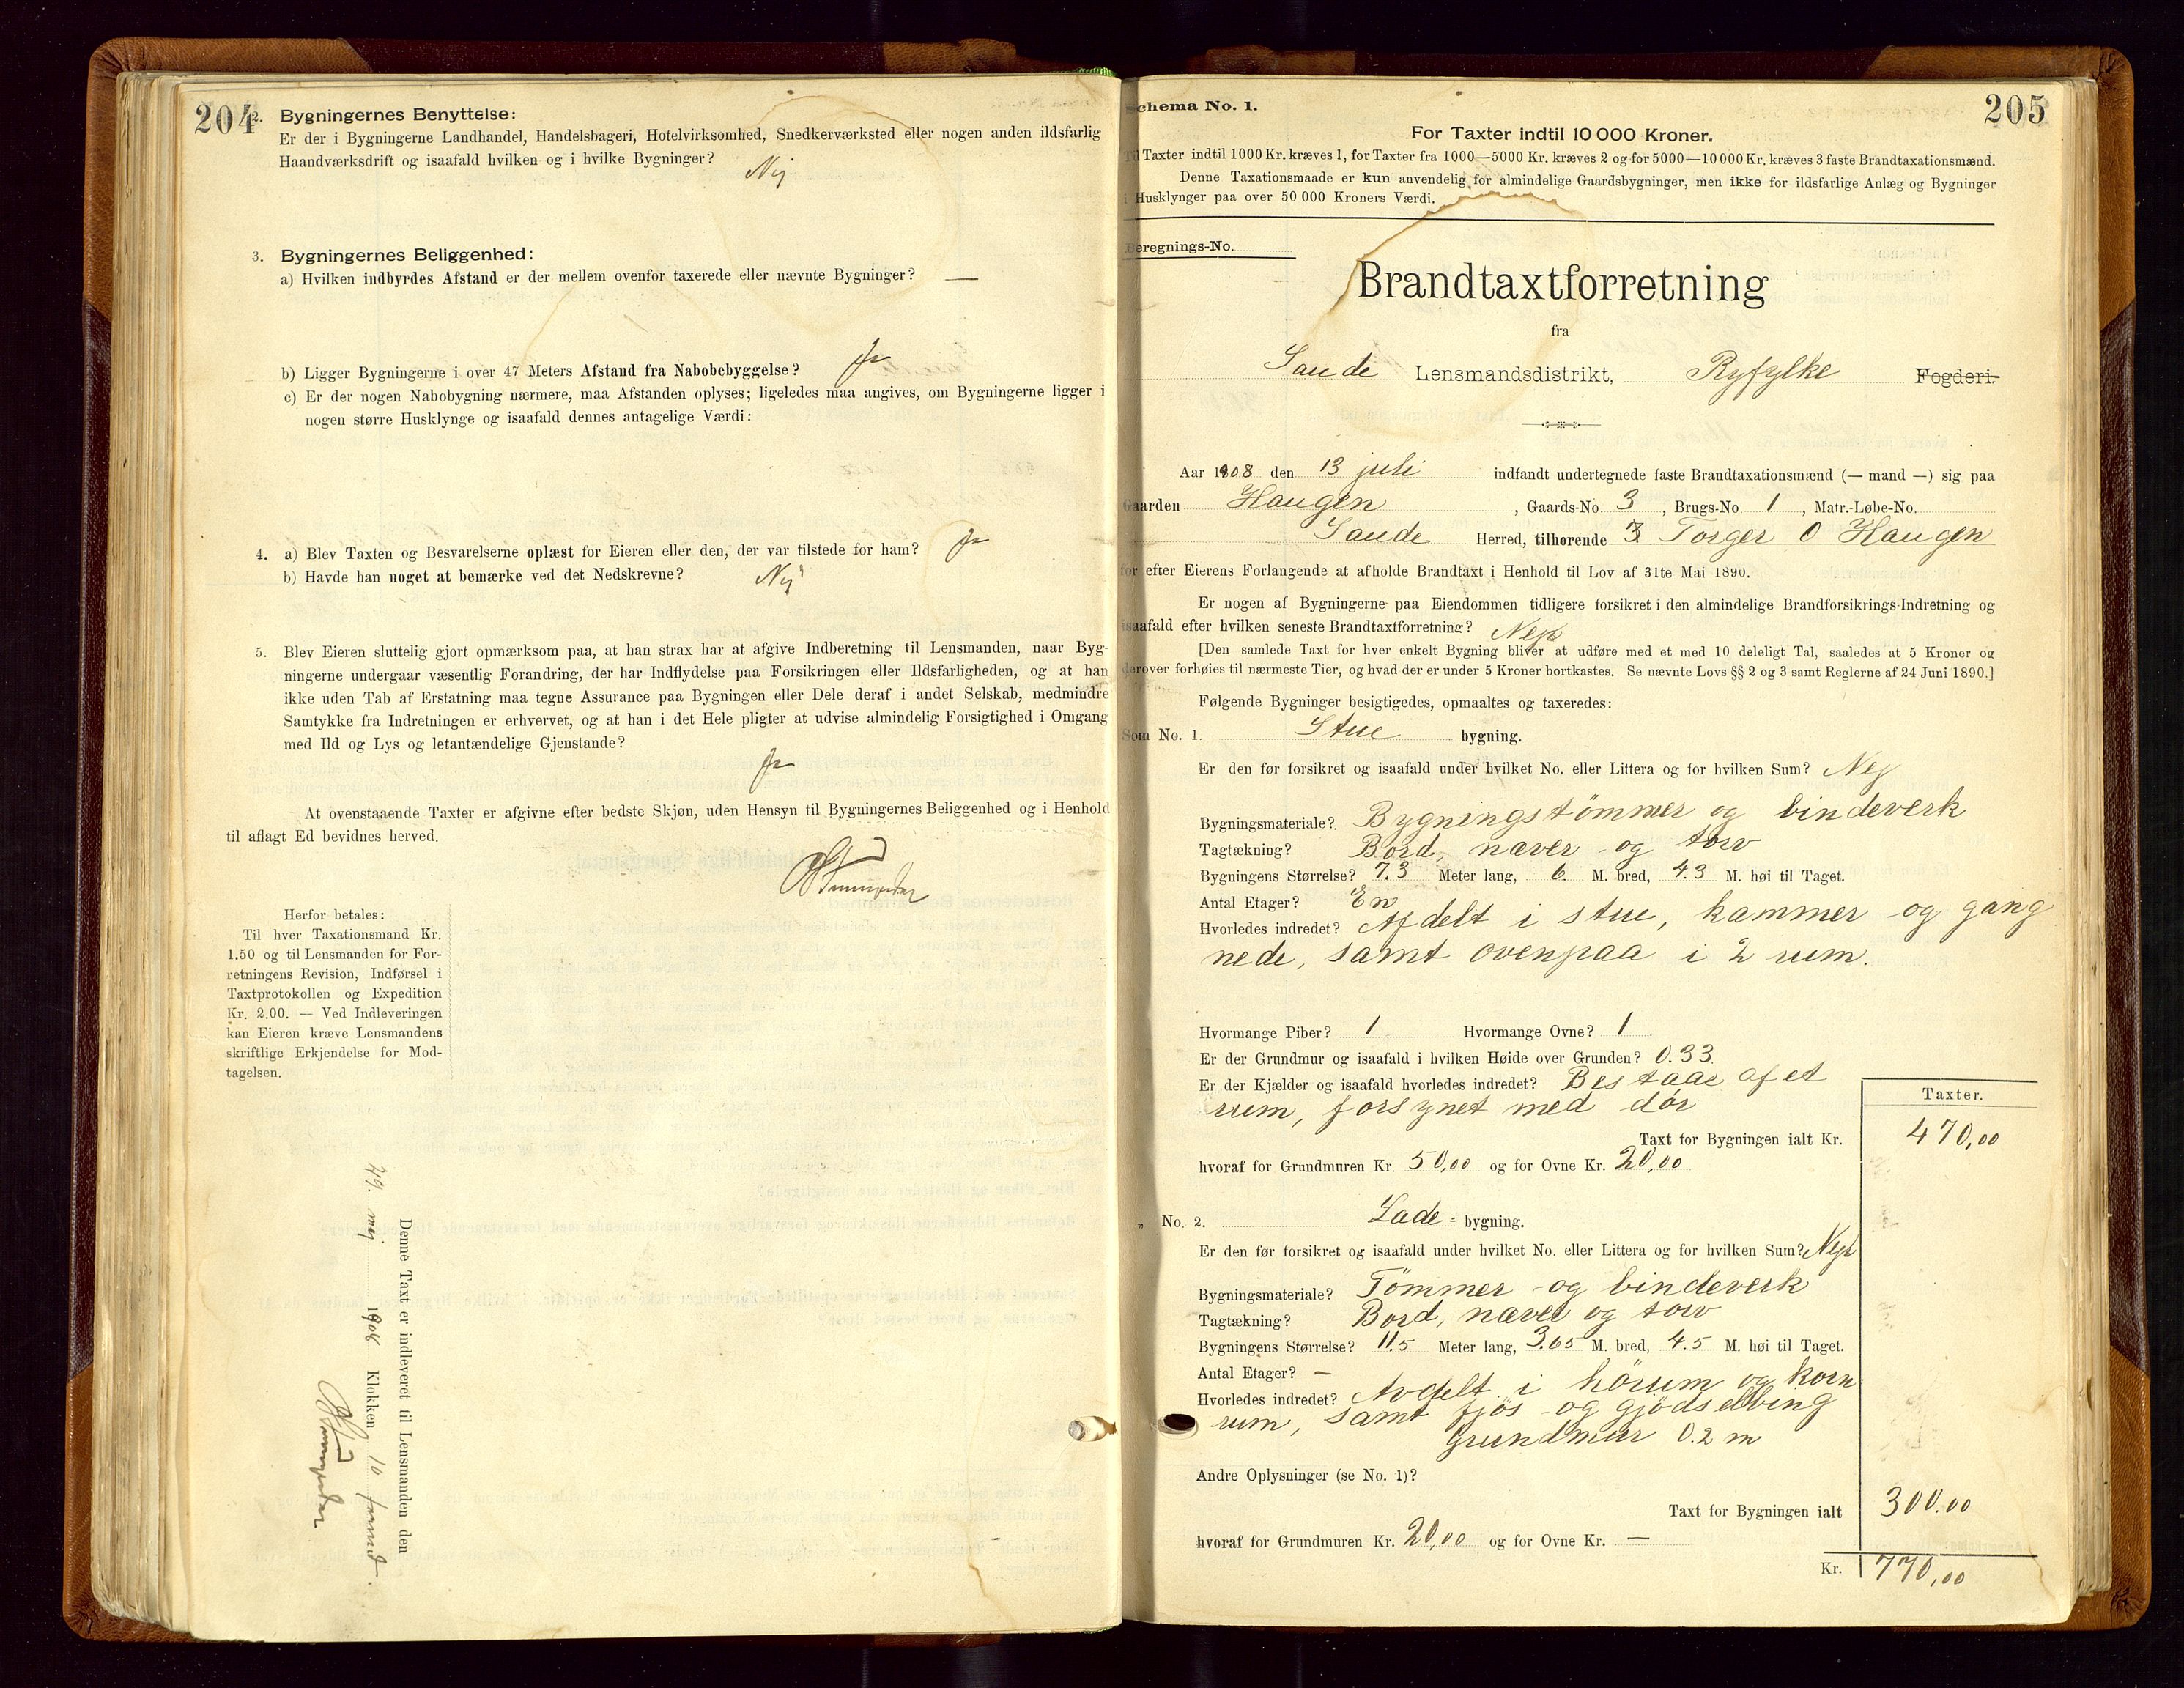 204
2. Bygningernes Benyttelse:
Er der i Bygningerne Landhandel, Handelsbageri, Hotelvirksomhed, Snedkerværksted eller nogen anden ildsfarlig
Haandværksdrift og isaafald hvilken og i hvilke Bygninger? Nej
3. Bygningernes Beliggenhed:
a) Hvilken indbyrdes Afstand er der mellem ovenfor taxerede eller nævnte Bygninger? —
b) Ligger Bygningerne i over 47 Meters Afstand fra Nabobebyggelse? Ja
c) Er der nogen Nabobygning nærmere, maa Afstanden oplyses; ligeledes maa angives, om Bygningerne ligger i
nogen større Husklynge og isaafald dennes antagelige Værdi:
4. a) Blev Taxten og Besvarelserne oplæst for Eieren eller den, der var tilstede for ham? Ja
b) Havde han noget at bemærke ved det Nedskrevne? Nej
5. Blev Eieren sluttelig gjort opmærksom paa, at han strax har at afgive Indberetning til Lensmanden, naar Byg-
ningerne undergaar væsentlig Forandring, der har Indflydelse paa Forsikringen eller Ildsfarligheden, og at han
ikke uden Tab af Erstatning maa tegne Assurance paa Bygningen eller Dele deraf i andet Selskab, medmindre
Samtykke fra Indretningen er erhvervet, og at han i det Hele pligter at udvise almindelig Forsigtighed i Omgang
med Ild og Lys og letantændelige Gjenstande?
Ja
At ovenstaaende Taxter er afgivne efter bedste Skjøn, uden Hensyn til Bygningernes Beliggenhed og i Henhold
til aflagt Ed bevidnes herved.
Herfor betales:
Til hver Taxationsmand Kr.
1.50 og til Lensmanden for For-
retningens Revision, Indførsel i
Taxtprotokollen og Expedition
Kr. 2.00. — Ved Indleveringen
kan Eieren kræve Lensmandens
skriftlige Erkjendelse for Mod-
tagelsen.
Denne Taxt er indleveret til Lensmanden den
29. mej 1908 Klokken 10 formd.
Schema No. 1.
205
For Taxter indtil 10 000 Kroner.
Til Taxter indtil 1000 Kr. kræves 1, for Taxter fra 1000—5000 Kr. kræves 2 og for 5000—10 000 Kr. kræves 3 faste Brandtaxationsmænd.
Denne Taxationsmaade er kun anvendelig for almindelige Gaardsbygninger, men ikke for ildsfarlige Anlæg og Bygninger
i Husklynger paa over 50 000 Kroners Værdi.
Beregnings-No.
Brandtaxtforretning
fra
Saude Lensmandsdistrikt, Ryfylke Fogderi.
Aar 1908 den 13 juli indfandt undertegnede faste Brandtaxationsmænd (— mand —) sig paa
Gaarden Haugen, Gaards-No. 3, Brugs-No. 1, Matr.-Løbe-No.
Saude Herred, tilhørende Torger O Haugen
for efter Eierens Forlangende at afholde Brandtaxt i Henhold til Lov af 31te Mai 1890.
Er nogen af Bygningerne paa Eiendommen tidligere forsikret i den almindelige Brandforsikrings-Indretning og
isaafald efter hvilken seneste Brandtaxtforretning? Nej
[Den samlede Taxt for hver enkelt Bygning bliver at udføre med et med 10 deleligt Tal, saaledes at 5 Kroner og
derover forhøies til nærmeste Tier, og hvad der er under 5 Kroner bortkastes. Se nævnte Lovs §§ 2 og 3 samt Reglerne af 24 Juni 1890.]
Følgende Bygninger besigtigedes, opmaaltes og taxeredes:
Som No. 1. Stue bygning.
Er den før forsikret og isaafald under hvilket No. eller Littera og for hvilken Sum? Nej
Bygningsmateriale? Bygningstømmer og bindeverk
Tagtækning? Bord, næver og torv
Bygningens Størrelse? 7.3 Meter lang, 6. M. bred, 4.3 M. høi til Taget.
Antal Etager? En
Hvorledes indredet? Afdelt i stue, kammer og gang
nede, samt ovenpaa i 2 rum.
Hvormange Piber? 1 Hvormange Ovne? 1
Er der Grundmur og isaafald i hvilken Høide over Grunden? 0.33
Er der Kjælder og isaafald hvorledes indredet? Bestaae af et
rum, forsynet med dør
Taxter.
Taxt for Bygningen ialt Kr. 470,00
hvoraf for Grundmuren Kr. 50,00 og for Ovne Kr. 20,00
„ No. 2. Lade- bygning.
Er den før forsikret og isaafald under hvilket No. eller Littera og for hvilken Sum? Nej
Bygningsmateriale? Tømmer og bindeverk
Tagtækning? Bord, næver og torv
Bygningens Størrelse? 11.5 Meter lang, 3.65 M. bred, 4.5 M. høi til Taget.
Antal Etager? —
Hvorledes indredet? Avdelt i hørum og korn-
rum, samt fjøs og gjødselbing
Grundmur 0.2 m
Andre Oplysninger (se No. 1)?
Taxt for Bygningen ialt 300.00
hvoraf for Grundmuren Kr. 20,00 og for Ovne Kr. —
Kr. 770,00